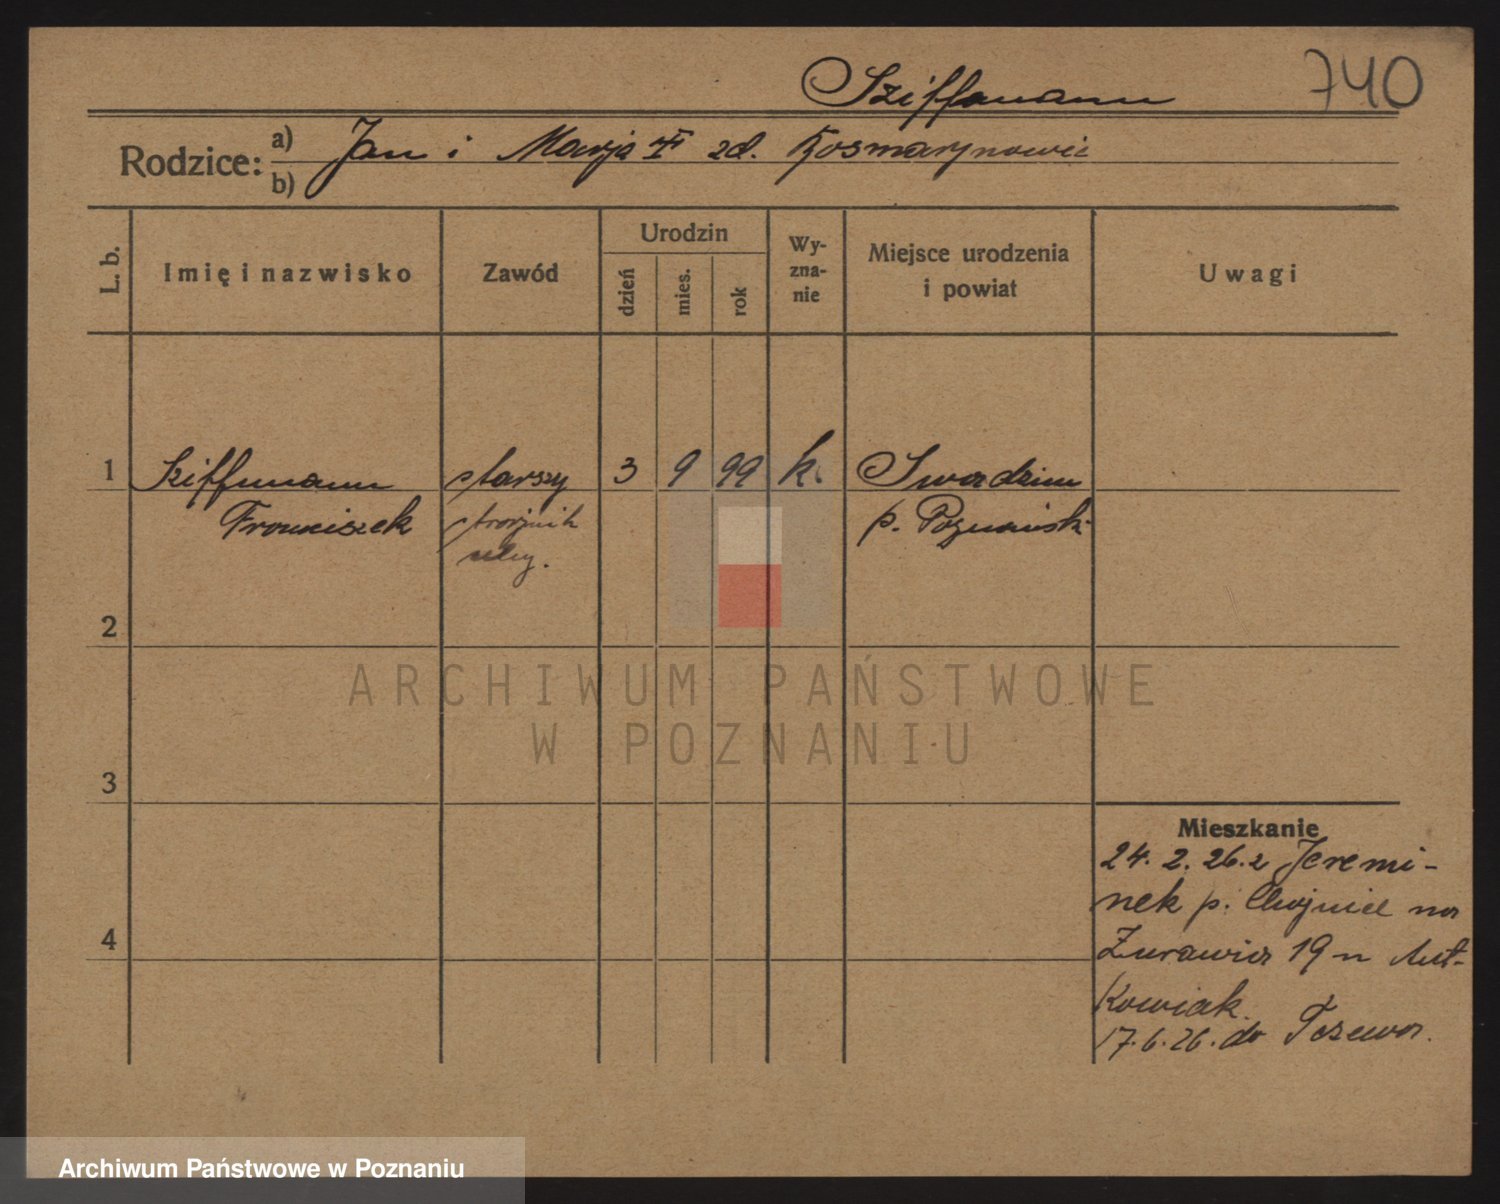 Sziffmann
740
Rodzice:
a) Jan i Marja zd. Rosmarynowic
b)
L. b.
Imię i nazwisko
Zawód
Urodzin
dzień
mies.
rok
Wy-
zna-
nie
Miejsce urodzenia
i powiat
Uwagi
1
Sziffmann
Franciszek
starszy
celny.
3
9
99
k.
Swadzim
p. Poznański
2
3
4
Mieszkanie
24. 2. 26. z Jeremi-
nek p. Chojnice na
Żurawia 19 u Aut-
kowiak.
17. 6. 26. do Tczewa.
ARCHIWUM PAŃSTWOWE
W POZNANIU
Archiwum Państwowe w Poznaniu